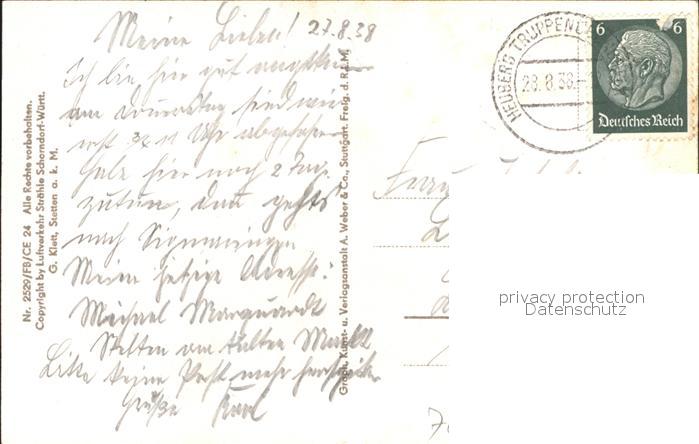 Meine Lieben! 27.8.38
Ich bin hier gut
am Donnerstag sind wir
erst Uhr abgefahren
habe hier noch 2 Tag
zutun, dan gehts
nach Sigmaringen
Meine jetzige Adresse:
Michael Marquardt
Stetten am kalten Markt
Bitte keine Post mehr
Grüße Karl
Nr. 2529/FB/CE 24 Alle Rechte vorbehalten.
Copyright by Luftverkehr Strähle Schorndorf-Württ.
G. Klett, Stetten a. k. M.
Graph. Kunst- u. Verlagsanstalt A. Weber & Co., Stuttgart. Freig. d. R.L.M.
HEUBERG TRUPPENÜ
28.8.38.
6 6
Deutsches Reich
Frau
privacy protection
Datenschutz